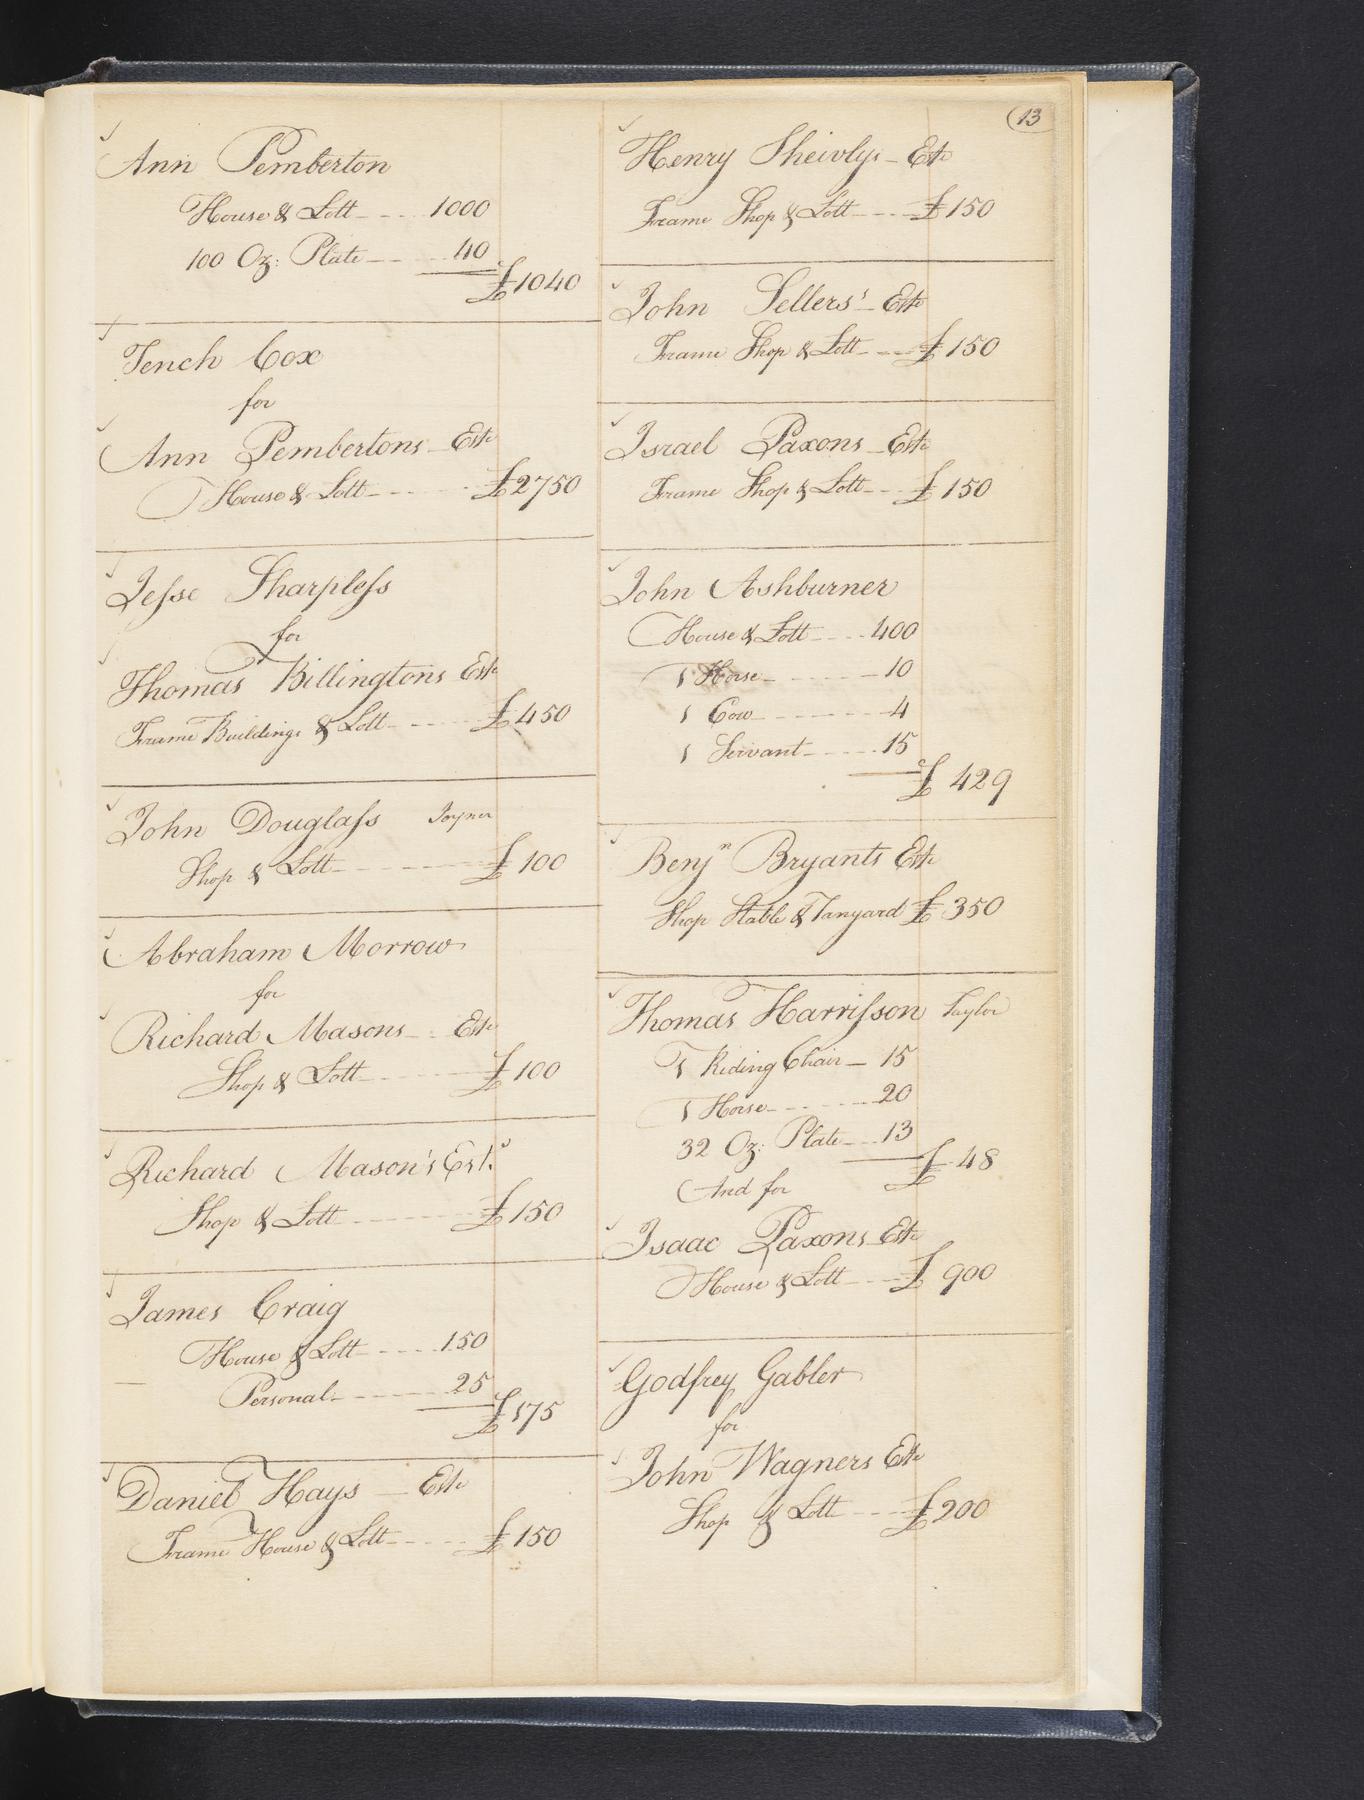 13
Ann Pemberton
House & Lott 1000
100 Oz: Plate 40
£1040
Tench Cox
for
Ann Pembertons Este
House & Lott £2750
Jesse Sharpless
for
Thomas Billingtons Este
Frame Buildings & Lott £450
John Douglass Joyner
Shop & Lott £100
Abraham Morrow
for
Richard Masons Este
Shop & Lott £100
Richard Mason's Est.
Shop & Lott £150
James Craig
House & Lott 150
Personal 25
£175
Daniel Hays Este
Frame House & Lott £150
Henry Sheivlys Este
Frame Shop & Lott £150
John Sellers's Este
Frame Shop & Lott £150
Israel Paxons Este
Frame Shop & Lott £150
John Ashburner
House & Lott 400
1 Horse 10
1 Cow 4
1 Servant 15
£429
Benjn Bryants Este
Shop Stable & Tanyard £350
Thomas Harrisson Taylor
1 Riding Chair 15
1 Horse 20
32 Oz: Plate 13
£48
And for
Isaac Paxons Este
House & Lott £900
Godfrey Gabler
for
John Wagners Este
Shop & Lott £200